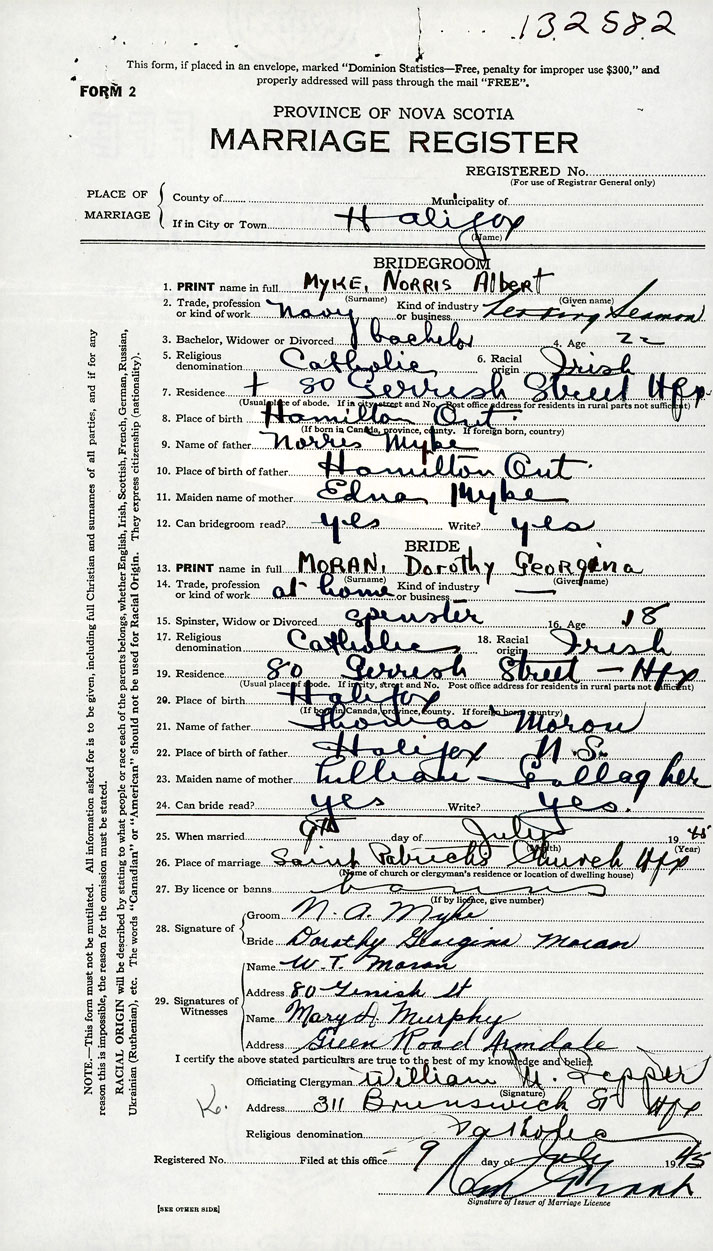 132582
This form, if placed in an envelope, marked "Dominion Statistics—Free, penalty for improper use $300," and
properly addressed will pass through the mail "FREE".
FORM 2
PROVINCE OF NOVA SCOTIA
MARRIAGE REGISTER
REGISTERED No.
(For use of Registrar General only)
PLACE OF MARRIAGE
County of Municipality of
If in City or Town Halifax
(Name)
BRIDEGROOM
1. PRINT name in full MYKE, NORRIS Albert
(Surname) (Given name)
2. Trade, profession or kind of work Navy Kind of industry or business
3. Bachelor, Widower or Divorced bachelor 4. Age 22
5. Religious denomination Catholic 6. Racial origin Irish
7. Residence 80 Gerrish Street Hfx
(Usual place of abode. If in city, street and No. Post office address for residents in rural parts not sufficient)
8. Place of birth Hamilton Ont.
(If born in Canada, province, county. If foreign born, country)
9. Name of father Norris Myke
10. Place of birth of father Hamilton Ont.
11. Maiden name of mother Edna Myke
12. Can bridegroom read? yes Write? yes
BRIDE
13. PRINT name in full MORAN, Dorothy Georgina
(Surname) (Given name)
14. Trade, profession or kind of work at home Kind of industry or business —
15. Spinster, Widow or Divorced spinster 16. Age 18
17. Religious denomination Catholic 18. Racial origin Irish
19. Residence 80 Gerrish Street — Hfx
(Usual place of abode. If in city, street and No. Post office address for residents in rural parts not sufficient)
20. Place of birth Halifax
(If born in Canada, province, county. If foreign born, country)
21. Name of father Thomas Moran
22. Place of birth of father Halifax N.S.
23. Maiden name of mother Lillian Gallagher
24. Can bride read? yes Write? yes.
25. When married 9th day of July 19 45
(Month) (Year)
26. Place of marriage Saint Patrick's Church Hfx
(Name of church or clergyman's residence or location of dwelling house)
27. By licence or banns banns
(If by licence, give number)
28. Signature of
Groom N. A. Myke
Bride Dorothy Georgina Moran
29. Signatures of Witnesses
Name W. T. Moran
Address 80 Gerrish St
Name Mary A. Murphy
Address Green Road Armdale
I certify the above stated particulars are true to the best of my knowledge and belief.
Officiating Clergyman William
(Signature)
K. Address 311 Brunswick St Hfx
Religious denomination Catholic
Registered No. Filed at this office 9 day of July 1945
Signature of Issuer of Marriage Licence
[SEE OTHER SIDE]
NOTE.—This form must not be mutilated. All information asked for is to be given, including full Christian and surnames of all parties, and if for any
reason this is impossible, the reason for the omission must be stated.
RACIAL ORIGIN will be described by stating to what people or race each of the parents belongs, whether English, Irish, Scottish, French, German, Russian,
Ukrainian (Ruthenian), etc. The words "Canadian" or "American" should not be used for Racial Origin. They express citizenship (nationality).